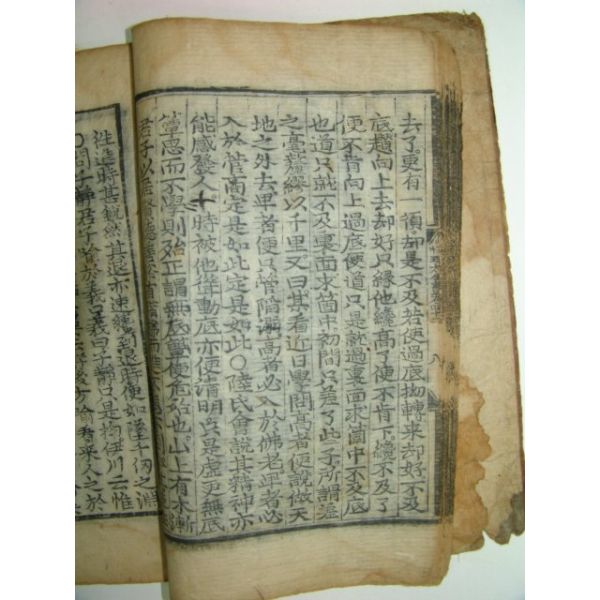 去了更有一項却是不及若使過底拗轉来却好不及
底趲向上去却好只緣他纔高了便不肯下纔不及了
便不肯向上過底便道只是就過裏面求箇中不及底
也道只就不及裏面求箇中初間只差了些子所謂差
之毫釐繆以千里又曰某看近日學問高者便說做天
地之外去卑者便只管陷溺高者必入於佛老卑者必
入於管商定是如此定是如此○陸氏會說其精神亦
能感發人一時被他悚動底亦便清明只是虛更無底
簟思而不學則殆正謂無底簟便危殆也山上有木漸
君子以居賢德善俗
性造時甚銳然其退亦速纔到退時便如墜千仞之淵
○問子靜君子喻於義口義曰子靜只是拗伊川云惟